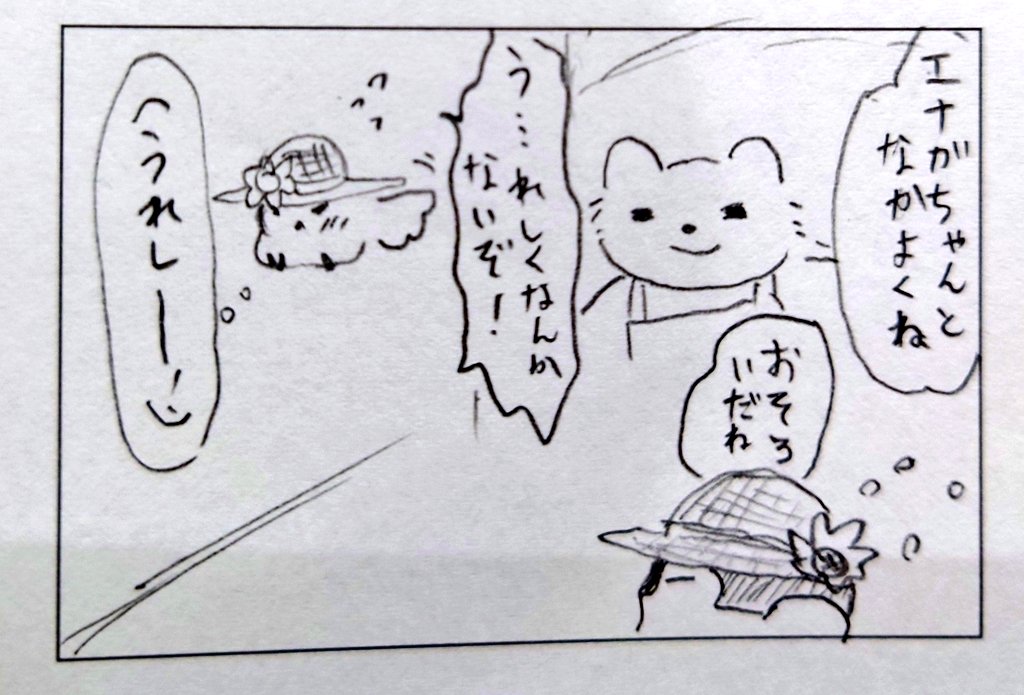 エナガちゃんと
なかよくね
おそろ
いだね
う…れしくなんか
ないぞ!
(うれしー!)